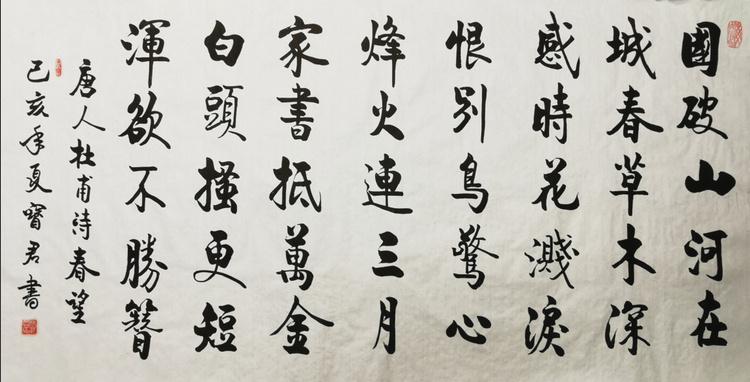 國破山河在
城春草木深
感時花濺淚
恨别鳥驚心
烽火連三月
家書抵萬金
白頭搔更短
渾欲不勝簪
唐人杜甫詩春望
己亥年夏寶君書